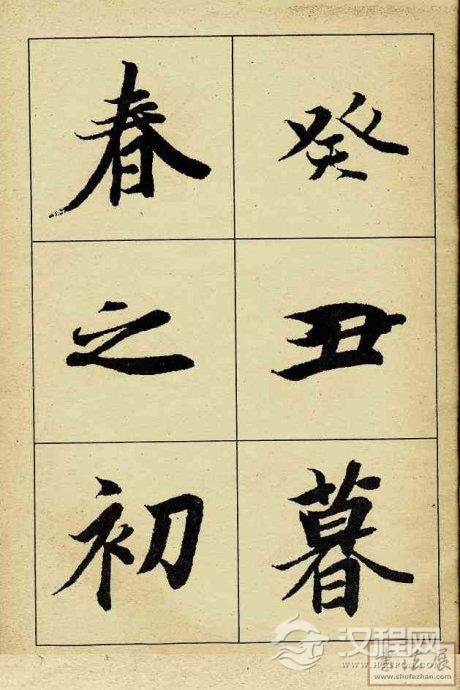 癸丑暮
春之初
汉程网
www.shofazhan.com